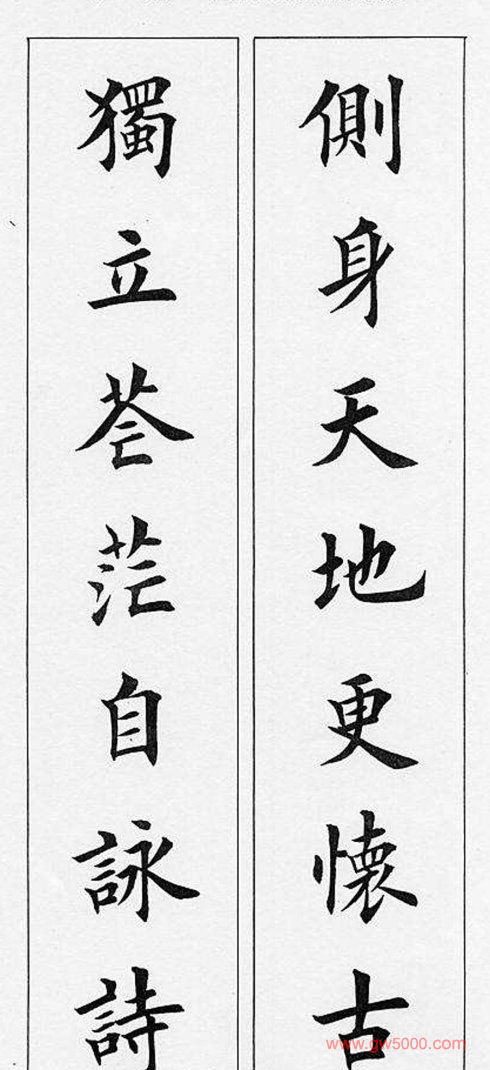 側身天地更懷古
獨立蒼茫自詠詩
www.gw5000.com